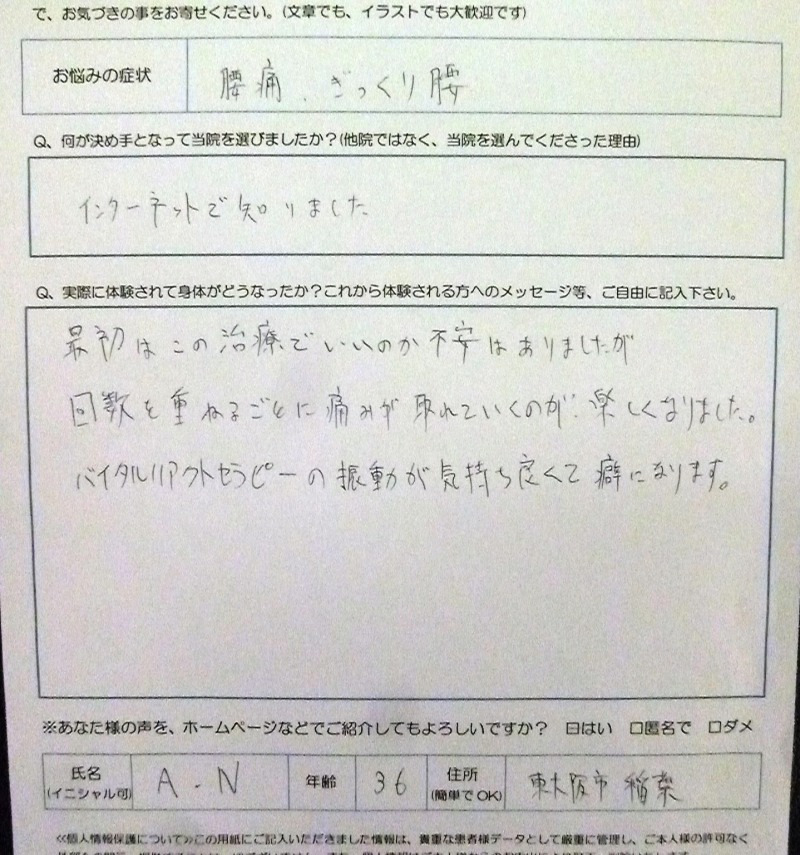 で、お気づきの事をお寄せください。(文章でも、イラストでも大歓迎です)
お悩みの症状 腰痛、ぎっくり腰
Q、何が決め手となって当院を選びましたか?(他院ではなく、当院を選んでくださった理由)
インターネットで知りました
Q、実際に体験されて身体がどうなったか?これから体験される方へのメッセージ等、ご自由に記入下さい。
最初はこの治療でいいのか不安はありましたが
回数を重ねるごとに痛みが取れていくのが楽しくなりました。
バイタルリアクトセラピーの振動が気持ち良くて癖になります。
※あなた様の声を、ホームページなどでご紹介してもよろしいですか? 日はい 口匿名で 口ダメ
氏名 (イニシャル可) A.N 年齢 36 住所 (簡単でOK) 東大阪市 稲葉
≪個人情報保護について≫この用紙にご記入いただきました情報は、貴重な患者様データとして厳重に管理し、ご本人様の許可なく